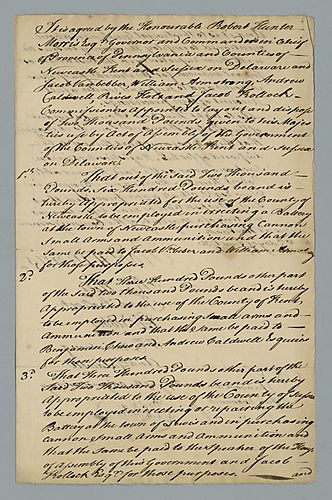 It is agreed by the Honourable Robert Hunter
Morris Esqr. Governor and Commander in Chief
of Province of Pennsylvania and Counties of
Newcastle Kent and Sussex on Delaware and
Jacob Vanbebber William Armstrong Andrew
Caldwell and Jacob Kollock
Commissioners Appointed to lay out and dispose
of Two Thousand Pounds given to his Majes
ties use by Act of Assembly of the Government
of the Counties of Newcastle Kent and Sussex
on Delaware.
1st. That out of the Said Two Thousand
Pounds Six Hundred Pounds be and is
hereby Appropriated for the use of the County of
Newcastle to be employed in erecting a Battery
at the town of Newcastle purchasing Cannon
Small Arms and Ammunition and that the
Same be paid to Jacob and William
for those purposes.
2d. That Three Hundred Pounds other part
of the Said Two Thousand Pounds be and is hereby
Appropriated to the use of the County of Kent
to be employed in purchasing Small arms and
Ammunition and that the Same be paid to
Benjamin Chew and Andrew Caldwell Esquires
for those purposes
3d. That Three Hundred Pounds other part of the
Said Two Thousand Pounds be and is hereby
Appropriated to the use of the County of Sussex
to be employed in erecting or repairing the
Battery at the town of Lewis and in purchasing
Cannon Small Arms and Ammunition and
that the Same be paid to the Speaker of the House
of Assembly of this Government and Jacob
Kollock Esqr. for those purposes and